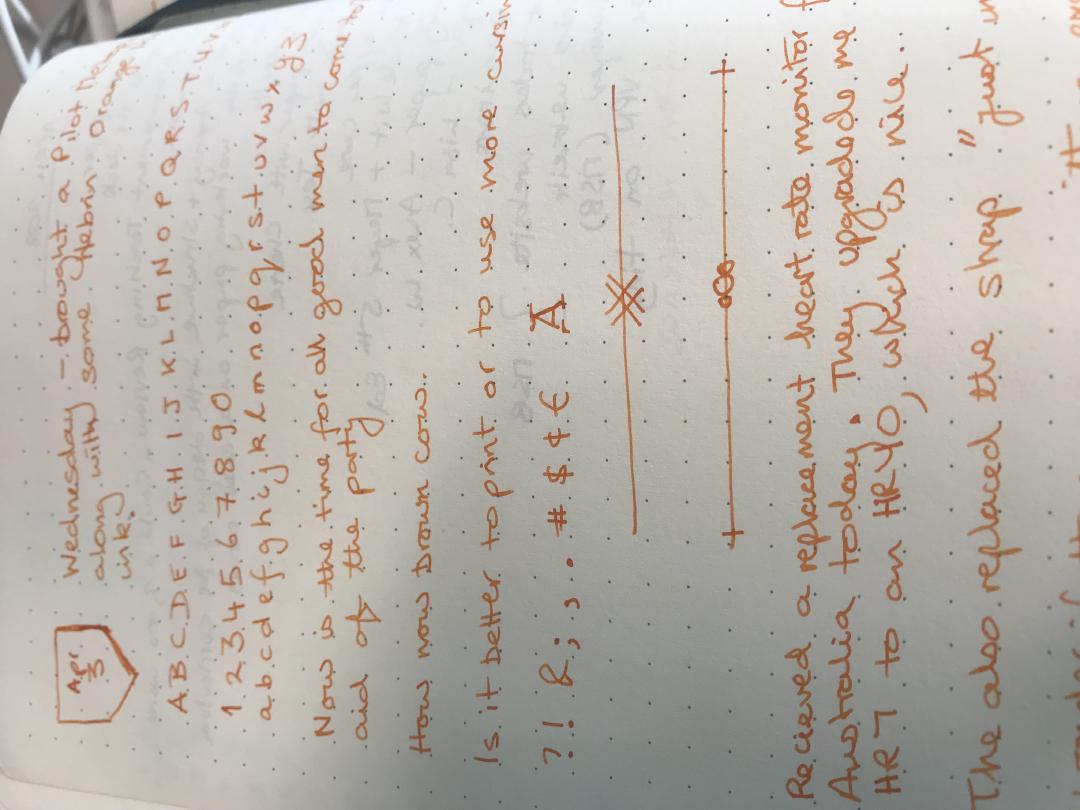 Apr
3
Wednesday - brought a Pilot
along with some Hebrin Orange
ink.
A B C D E F G H I J K L M N O P Q R S T U V
1 2 3 4 5 6 7 8 9 0
a b c d e f g h i j k l m n o p q r s t u v w x y z
Now is the time for all good men to come to
and of the party
How now brown cow.
Is it better to print or to use more cursive
? ! & ; , . # $ ¢ € A
Recieved a replacement heart rate monitor
Australia today. They upgraded me
HR7 to an HR40, which is nice..
The also replaced the shap " just in